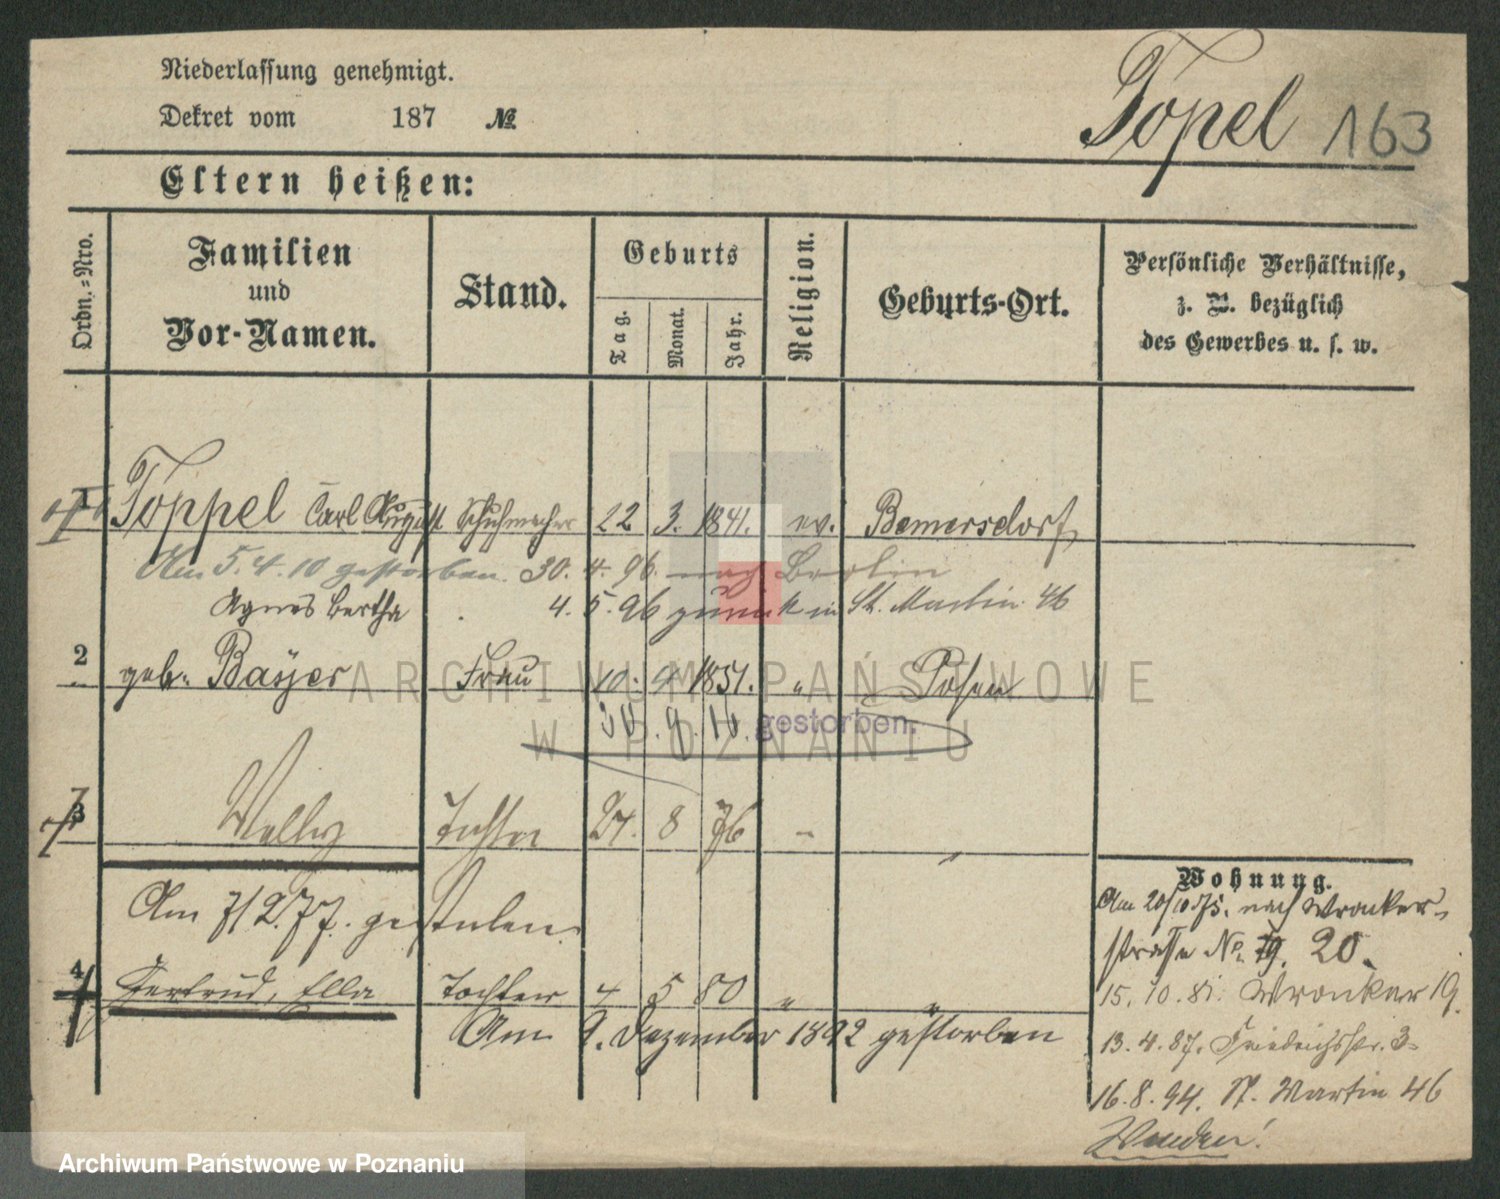 Niederlassung genehmigt.
Dekret vom 187 №
Topel 163
Eltern heißen:
Ordn.-Nro.
Familien
und
Vor-Namen.
Stand.
Geburts
Tag.
Monat.
Jahr.
Religion.
Geburts-Ort.
Persönliche Verhältnisse,
z. B. bezüglich
des Gewerbes u. s. w.
1 Toppel Carl August Schuhmacher 22 3. 1841. ev. Bemersdorf
Am 5.4.10 gestorben. 30. 4. 96. nach Berlin
Agnes Bertha 4. 5. 96 zurück in St. Martin 46
2 geb. Bayer Frau 10. 4 1851. " Posen
30. 9. 16. gestorben.
3 Tochter 27. 8 76 "
Am 7/2.77. gestorben
4 Gertrud, Ella Tochter 4 5 80 " "
Am 9. Dezember 1892 gestorben
Wohnung.
Am 20/10 75. nach Wronker-
strasse No. 19. 20.
15. 10. 81. Wronker 19.
13. 4. 87. Friedrichstr. 3
16. 8. 94. St. Martin 46
Wenden!
ARCHIWUM PAŃSTWOWE
W POZNANIU
Archiwum Państwowe w Poznaniu